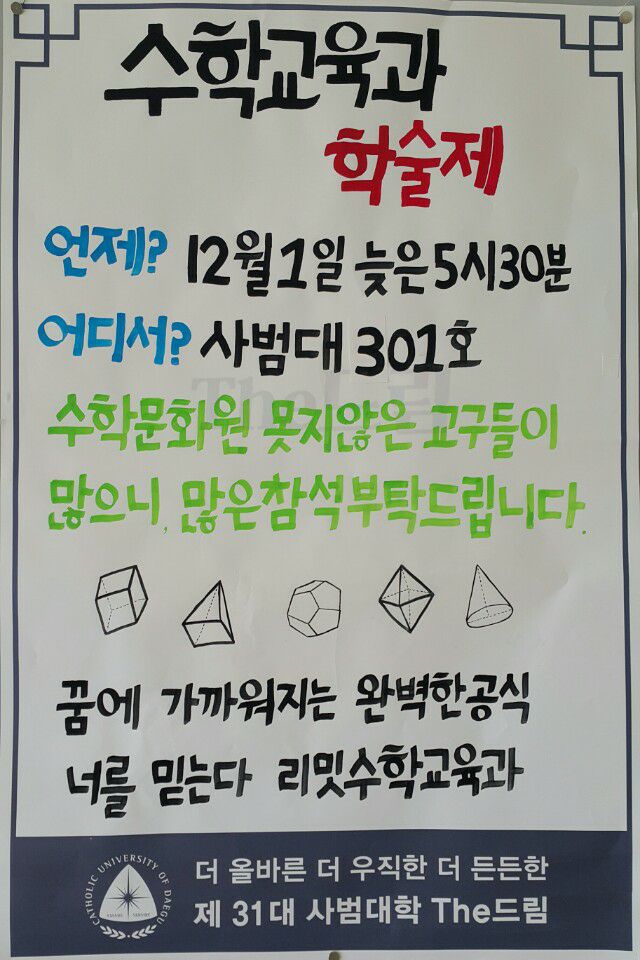 수학교육과
학술제
언제? 12월 1일 늦은 5시 30분
어디서? 사범대 301호
수학문화원 못지않은 교구들이
많으니, 많은 참석부탁드립니다.
꿈에 가까워지는 완벽한공식
너를 믿는다 리밋수학교육과
더 올바른 더 우직한 더 든든한
제 31대 사범대학 The드림
CATHOLIC UNIVERSITY OF DAEGU